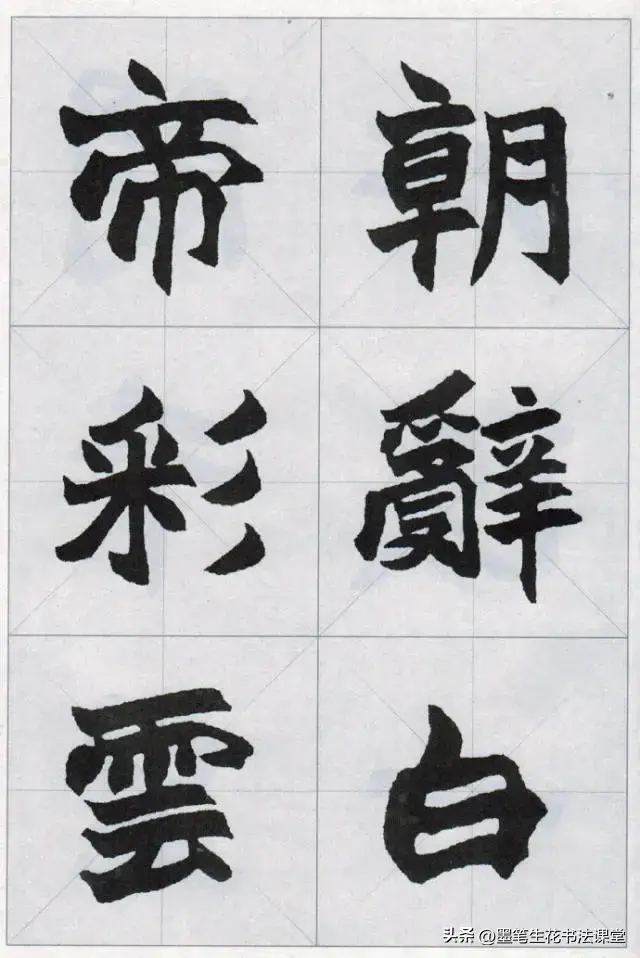 朝辭白
帝彩雲
头条 @墨笔生花书法课堂